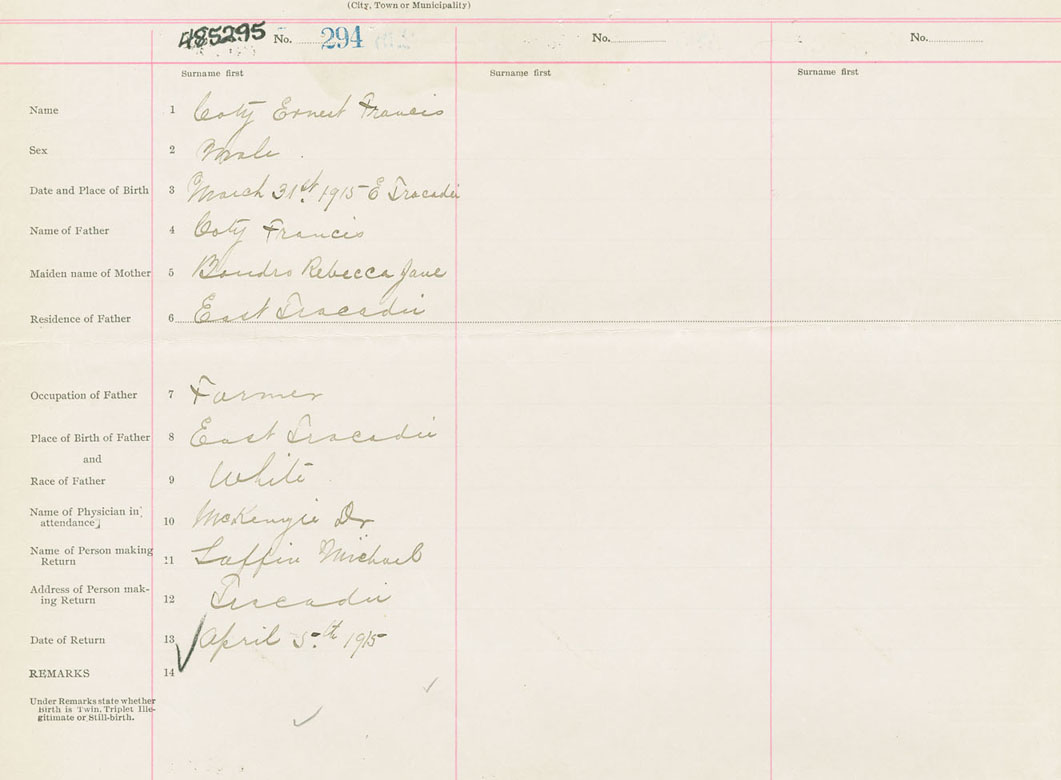 (City, Town or Municipality)
485295 No. 294 No. No.
Surname first Surname first Surname first
Name 1 Coty Ernest Francis
Sex 2 Male
Date and Place of Birth 3 March 31st 1915 E Tracadie
Name of Father 4 Coty Francis
Maiden name of Mother 5 Bondro Rebecca Jane
Residence of Father 6 East Tracadie
Occupation of Father 7 Farmer
Place of Birth of Father 8 East Tracadie
and
Race of Father 9 White
Name of Physician in
attendance 10 McKenzie Dr
Name of Person making
Return 11 Laffin Michael
Address of Person mak-
ing Return 12 Tracadie
Date of Return 13 April 5th 1915
REMARKS 14
Under Remarks state whether
Birth is Twin, Triplet Ille-
gitimate or Still-birth.